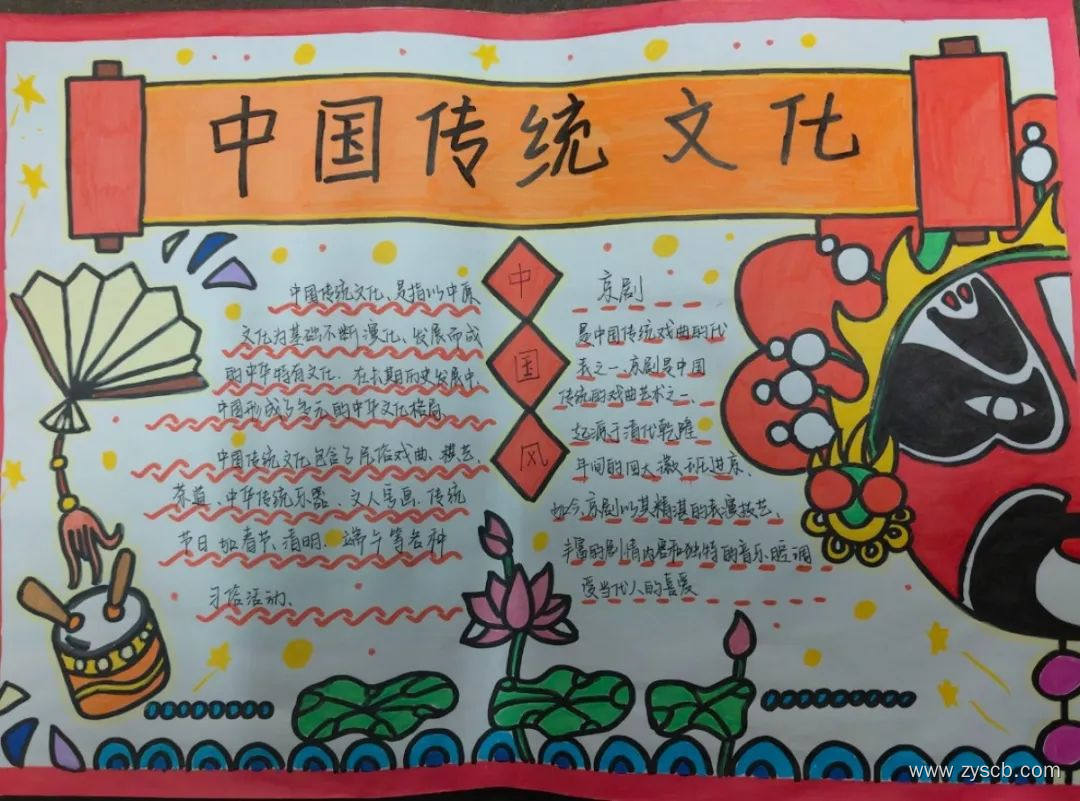 中国传统文化
中国传统文化、是指以中原
文化为基础不断演化、发展而成
的中华特有文化.在长期历史发展中.
中国形成了多元的中华文化格局.
中国传统文化包含了民俗戏曲、棋艺、
茶道、中华传统乐器、文人书画、传统
节日如春节、清明、端午等各种
习俗活动、
中
国
风
京剧
是中国传统戏曲的代
表之一、京剧是中国
传统的戏曲艺术之一、
起源于清代乾隆
年间的四大徽班进京、
如今、京剧以其精湛的表演技艺、
丰富的剧情内容和独特的音乐腔调
受当代人的喜爱
www.zyscb.com